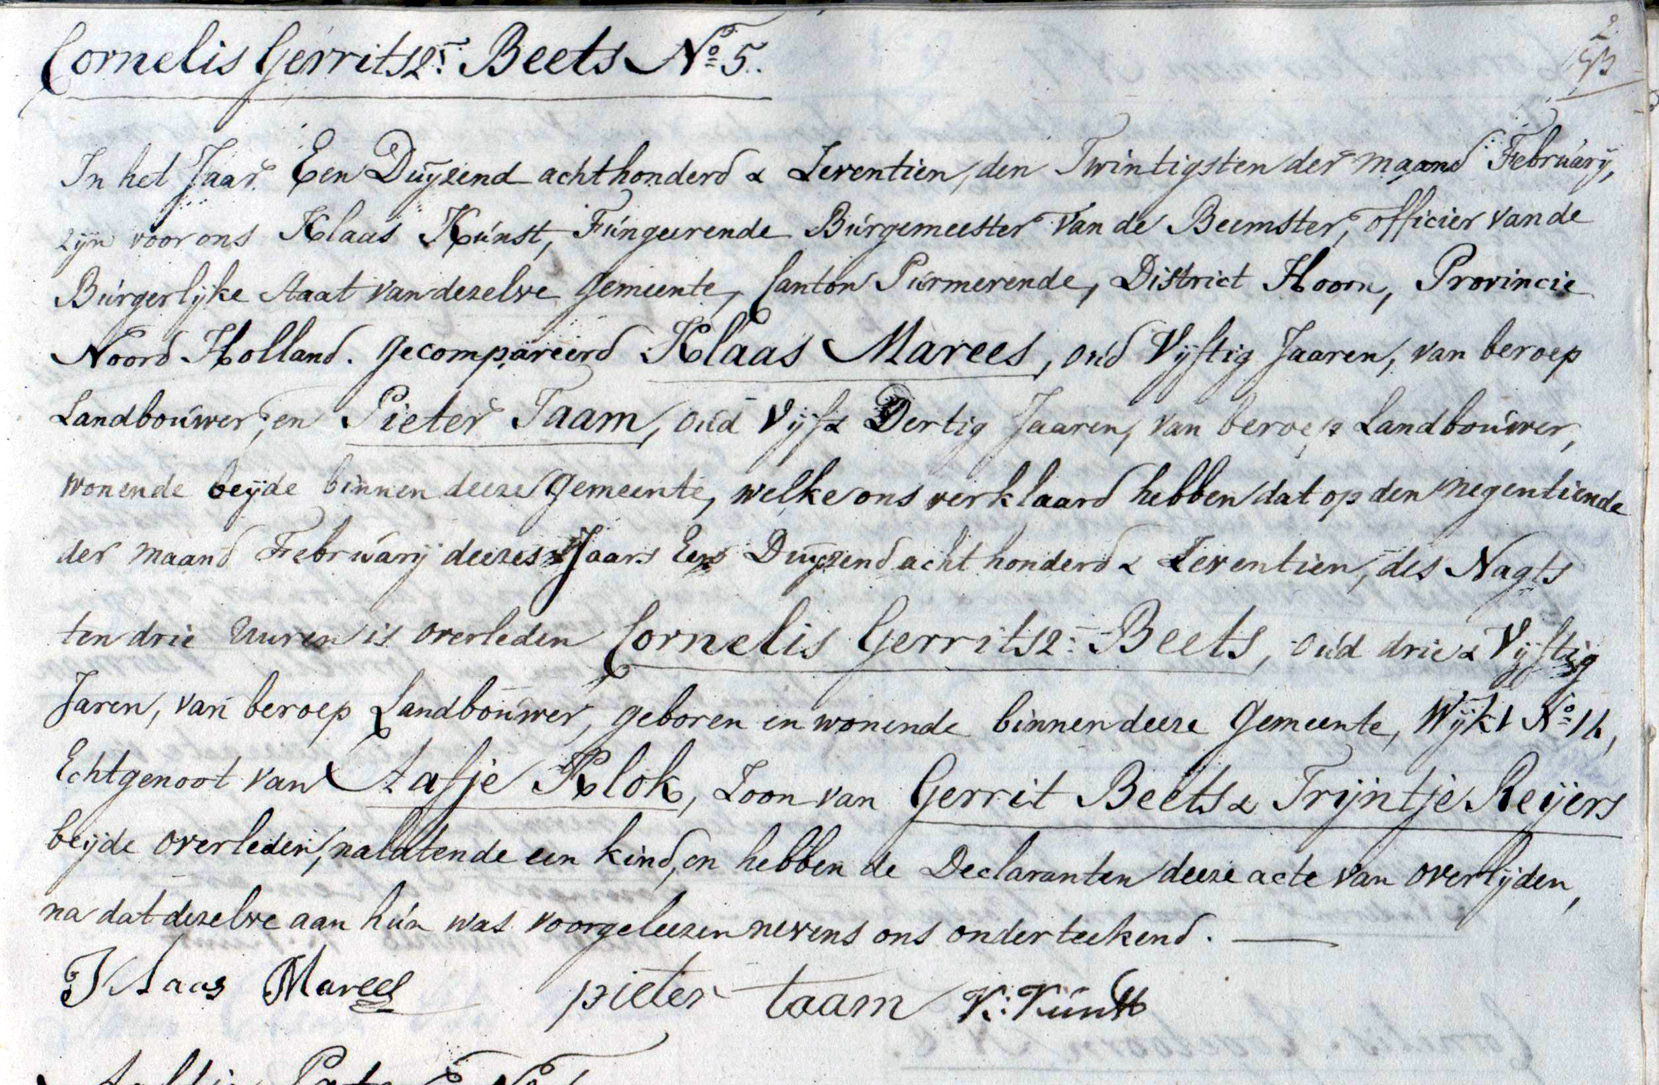 Cornelis Gerritsz: Beets No 5.
2
In het Jaar Een Duÿzend achthonderd & Zeventien, den Twintigsten der maand Februarÿ,
zijn voor ons Klaas Kúnst, Fúngeerende Búrgemeester van de Beemster, officier van de
Búrgerlijke Staat van dezelve Gemeente, Canton Púrmerende, District Hoorn, Provincie
Noord Holland. gecompareerd Klaas Marees, oúd Vijftig Jaaren, van beroep
Landboúwer, en Pieter Taam, oúd Vijf & Dertig Jaaren, van beroep Landboúwer,
wonende beÿde binnen deeze Gemeente, welke ons verklaard hebben dat op den negentiende
der maand Februarÿ deezes Jaars Een Duÿzend acht honderd & Zeventien, des Nagts
ten drie Uuren is overleden Cornelis Gerritsz: Beets, oúd drie & Vijftig
Jaren, van beroep Landboúwer, geboren en wonende binnen deeze Gemeente, Wijk 1 No 16,
Echtgenoot van Aafje Klok, Zoon van Gerrit Beets & Trijntje Reÿers
beÿde overleden, nalatende een kind, en hebben de Declaranten deeze acte van overlijden,
na dat dezelve aan hún was voorgeleezen nevens ons onderteekend.
Klaas Marees pieter taam K: Kúnst